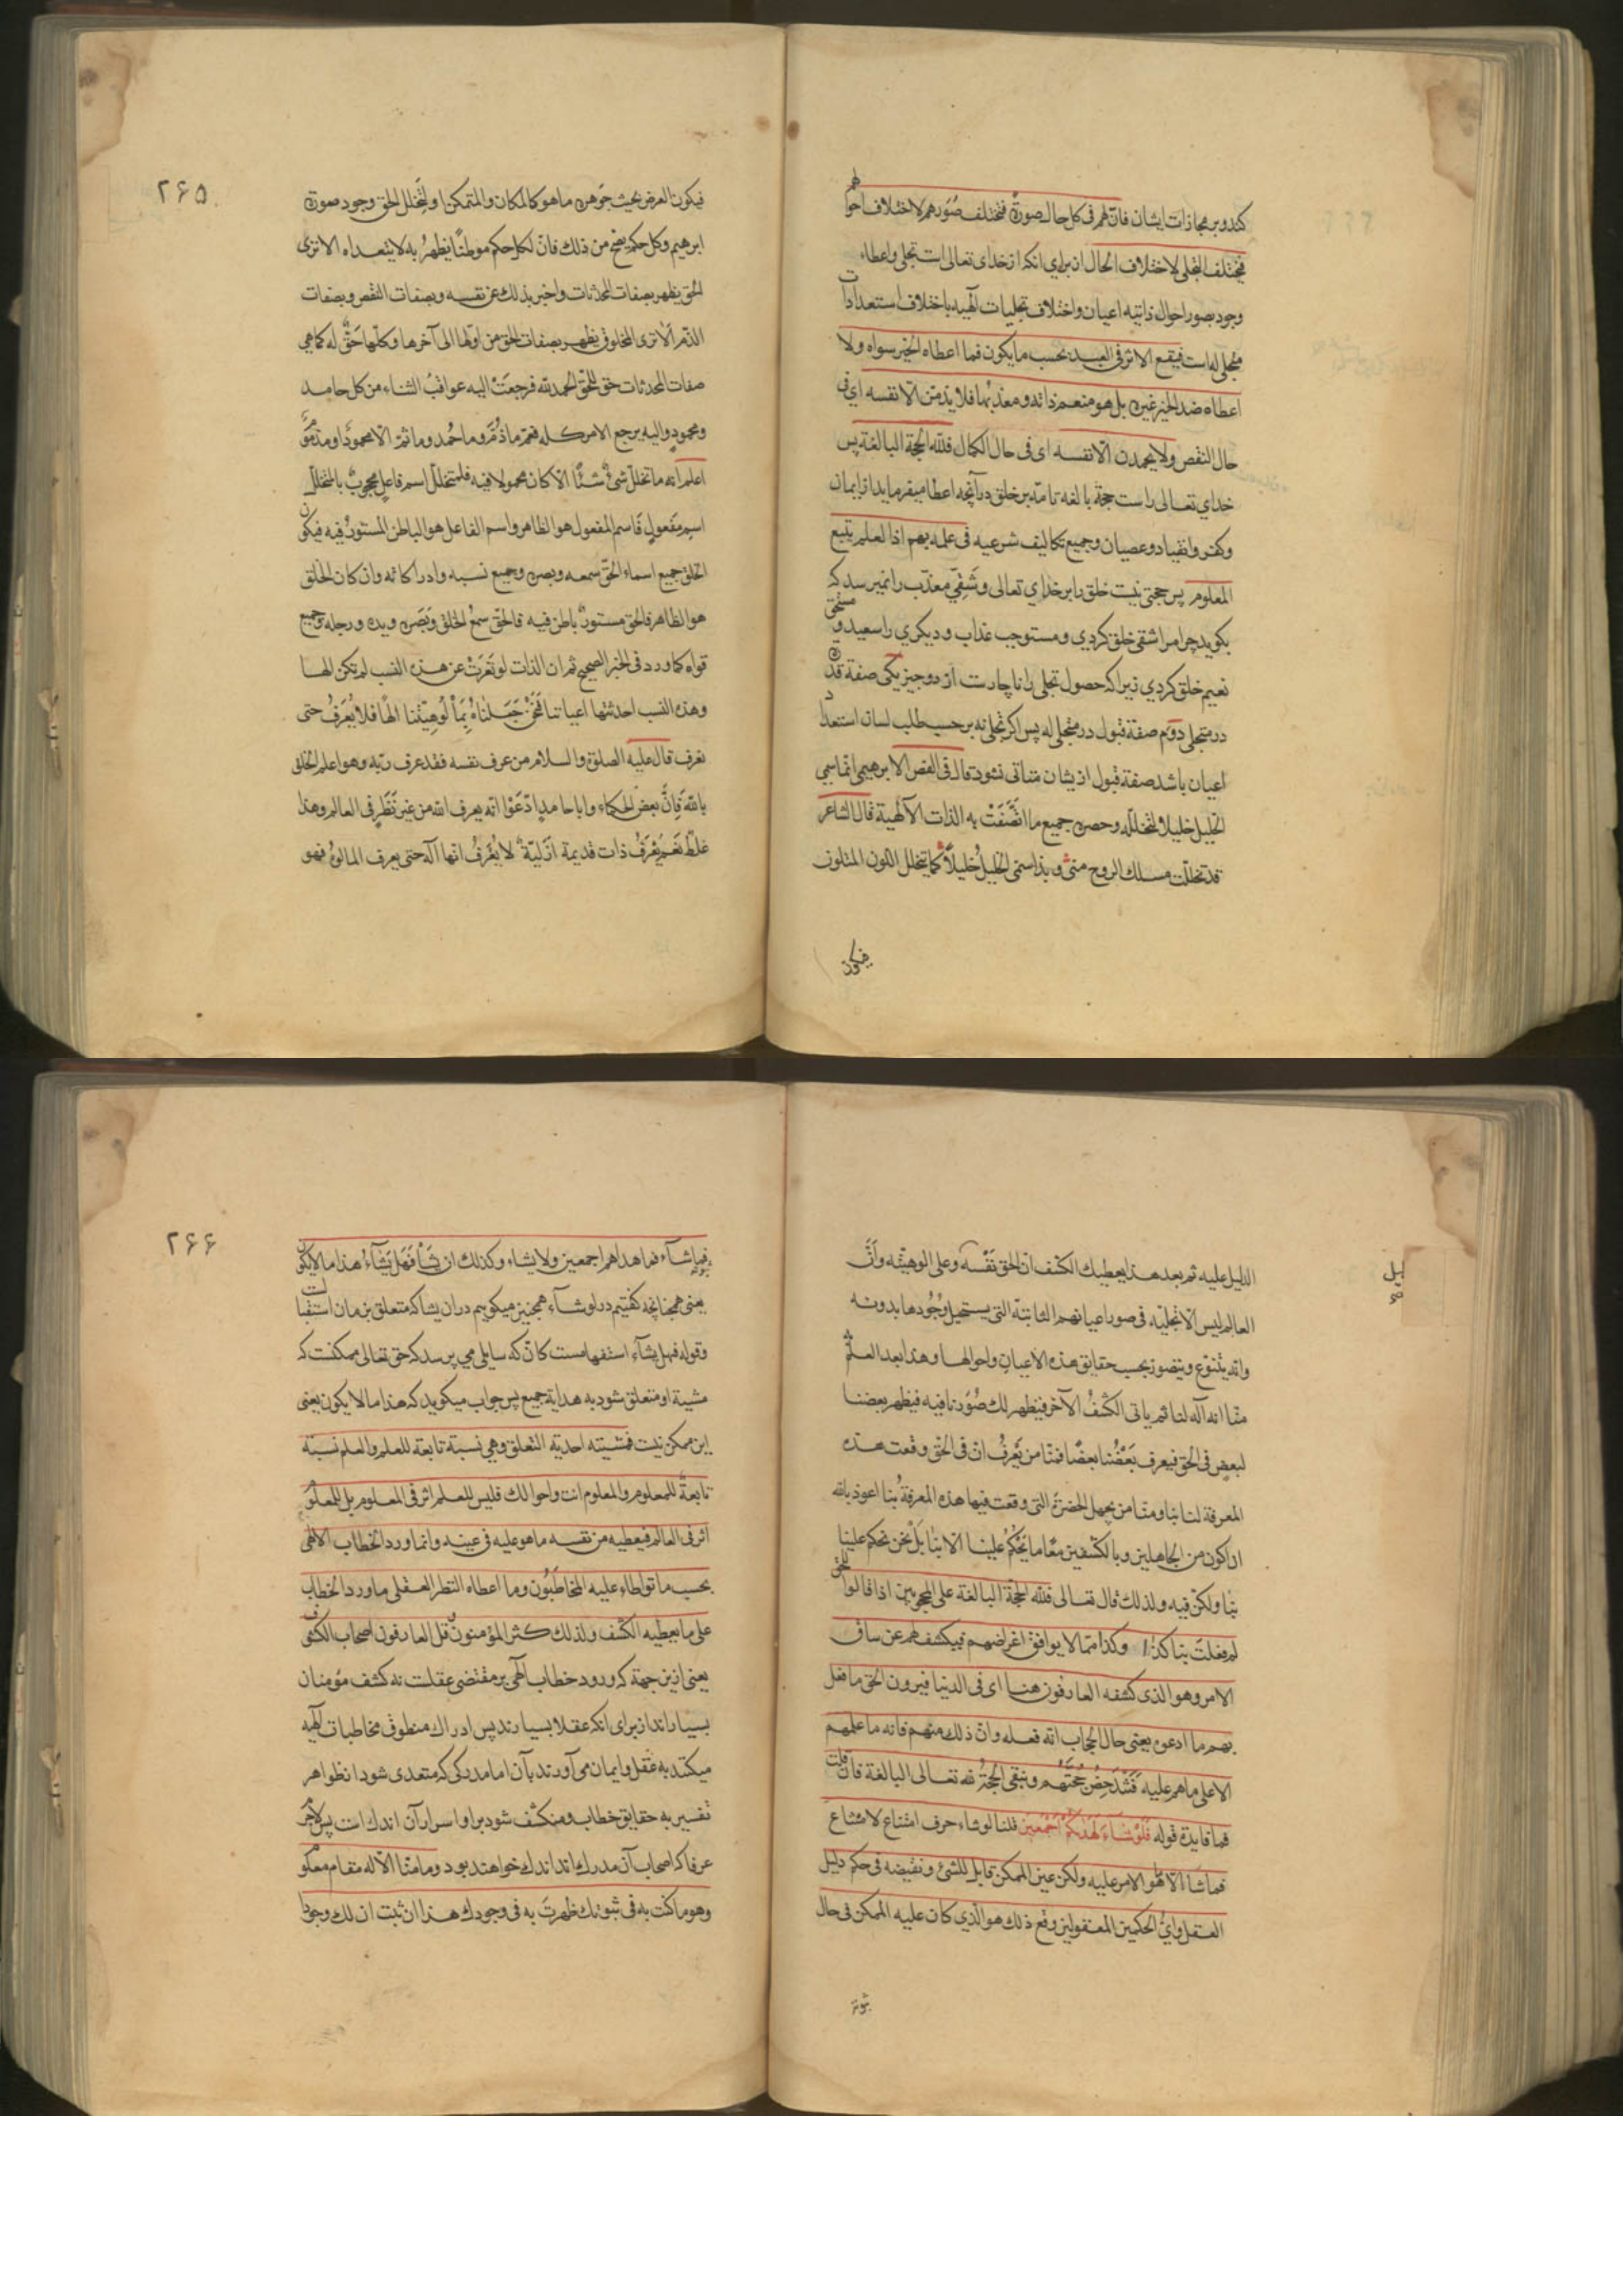 كند و بر مجازات ایشان فانّ لهم فى كل حال صورةً فتختلف صُوَرهم لاختلاف احوالهم
فيختلف التجلى لاختلاف الحال از براى انكه از خداى تعالى است تجلى و اعطاء
وجود بصور احوال ذاتيه اعيان و اختلاف تجليات الهيه باختلاف استعدادات
متجلى له است فيقع الاثر فى العبد بحسب ما يكون فما اعطاه الخير سواه ولا
اعطاه ضد الخير غيره بل هو منعم ذاته و معذبها فلا يذمّن الّا نفسه اى فى
حال النقص ولا يحمدن الّا نفسه اى فى حال الكمال فللّه الحجة البالغة پس
خداي تعالى راست حجة بالغه تامّه بر خلق در آنچه اعطا ميفرمايد از ايمان
و كفر و انقياد و عصيان و جميع تكاليف شرعيه فى علمه بهم اذ العلم يتبع
المعلوم پس حجتى نيست خلق را بر خداي تعالى و شقىّ معذّب را نميرسد كه
بكويد چرا مرا شقى خلق كردي و مستوجب عذاب و ديكري را سعيد و مستحق
نعيم خلق كردي زيرا كه حصول تجلى را ناچارست از دو چيز يكى صفة قدرة
در متجلى دوم صفة قبول در متجلى له پس اكر تجلى نه بر حسب طلب لسان استعداد
اعيان باشد صفة قبول از يشان متاتى نشود قال فى الفص الابرهيمى انما سمي
الخليل خليلا لتخلله و حصره جميع ما اتّصَفَتْ به الذات الالهية قال الشاعر
قد تخللت مسلك الروح منى و بذا سمى الخليلُ خليلاً كما يتخلل اللون المتلون
فيكون
٢۶۵
فيكون العرض بحيث جوهره ما هو كالمكان والمتمكن او لتخلل الحق وجود صورة
ابرهيم وكل حكم يصح من ذلك فانّ لكل حكم موطنًا يظهرُ به لا يتعداه الا ترى
الحق يظهر بصفات المحدثات واخبر بذلك عن نفسه وبصفات النقص وبصفات
الذّم ألا ترى المخلوق يظهر بصفات الحق من اولها الى آخرها وكلّها حَقٌّ له كما هى
صفات المحدثات حق للحق الحمد للّه فرجعَتْ اليه عواقبُ الثناء من كل حامد
ومحمودٍ واليه يرجع الامر كله فعمّ ما ذُمّ وما حُمد وما ثمّ الّا محمودٌ او مذموم
اعلم انه ما تخلل شئٌ شيئًا الا كان محمولا فيه فالمتخلل اسم فاعلٍ محجوبٌ بالمتخلل
اسم مفعولٍ فاسم المفعول هو الظاهر واسم الفاعل هو الباطن المستورُ فيه فيكون
الخلق جميع اسماء الحقّ سمعه وبصره وجميع نسبه وادراكاته وان كان الخلق
هو الظاهر فالحق مستورٌ باطن فيه فالحق سمعُ الخلق وبَصَره ويده ورجله وجميع
قواه كما ورد فى الخبر الصحيح ثم ان الذات لو تعَرّتْ عن هذه النسب لم تكن الهـا
وهذه النسب احدثتها اعياننا فنحنُ جَعَلناهُ بِمَألُوهِيَّتِنا الهًا فلا يُعرَفُ حتى
نعرف قال عليه الصلوة والسلام من عرف نفسه فقد عرف ربّه وهو اعلم الخلق
باللّه فإنَّ بعض الحكماء وابا حامدٍ ادّعَوا انه يعرف اللّه من غير نَظَرٍ فى العالم وهذا
غلطٌ نَعَم يُعْرَفُ ذات قديمة ازليّة لا يُعْرَفُ انها آله حتى يعرف المالوهُ فهو
الدليل عليه ثم بعد هذا يعطيك الكشف ان الحق نَفْسَه وعلى الوهيّته وَأنَّ
العالم ليس الّا تجلّيه فى صور اعيانهم الثابتة التى يستحيل وجُودها بدونه
وانه يتنوّع ويتصور بحسب حقايق هذه الاعيان واحوالها وهذا بعد العلم به
منّا انه آله لنا ثم ياتى الكشفُ الآخر فيظهر لك صُوَرنا فيه فيظهر بعضنا
لبعض فى الحق فيعرف بَعْضُنا بعضًا فمنّا من يَعْرِفُ انّ فى الحق وقعت هذه
المعرفة لنا بنا ومنّا من يجهل الحضرة التى وقعت فيها هذه المعرفةُ بنا اعوذ باللّه
ان اكون من الجاهلين وبالكشفين معًا ما يَحْكُمُ علينا الّا بنا بَلْ نحن نحكم علينا
بنا ولكن فيه ولذلك قال تعالى فللّه الحجة البالغة على المحجوبين اذا قالوا للحق
لم فعلتَ بنا كذا وكذا ممّا لا يوافق اغراضهم فيكشف لهم عن ساق
الامر وهو الذى كشفه العارفون هنا اى فى الدنيا فيرون الحق ما فعل
بهم ما ادعوه يعنى حال الحجاب انّه فعله وان ذلك منهم فانه ما علمهم
الا على ما هم عليه فَتَنْدَحِضُ حُجَّتُهُم وتبقى الحجّةُ للّه تعالى البالغة فان قلت
فما فايدة قوله فَلَوْ شاءَ لَهَديكُمْ اَجْمَعِينَ قلنا لو شاء حرف امتناع لامتناع
فما شاء الا ما هُو الامر عليه ولكن عين الممكن قابل للشئ ونقيضه فى حكم دليل
العقل واىُّ الحكمين المعقولين وقع ذلك هو الّذي كان عليه الممكن فى حال
ثبوته
٢۶۶
ثبوته فما شآء فما هداهم اجمعين ولا يشاء وكذلك ان يَشَأْ فَهَل يَشاءُ هذا ما لا يكون
يعنى همچنانچه كفتيم در لو شآء همچنين ميكوييم در ان يشا كه متعلق بزمان استقبال است
وقوله فهل يشآء استفهامست كانّه كه سايلى مى پرسد كه حق تعالى ممكنست كه
مشية او متعلق شود به هداية جميع پس جواب ميكويد كه هذا ما لا يكون يعنى
اين ممكن نيست فمشيته احدية التعلق وهى نسبة تابعة للعلم والعلم نسبة
تابعةٌ للمعلوم والمعلوم انت واحوالك فليس للعلم اثر فى المعلوم بل للمعلوم
اثر فى العالم فيعطيه من نفسه ما هو عليه فى عينه وانما ورد الخطاب الالهى
بحسب ما تواطاء عليه المخاطَبُون وما اعطاه النظر العقلى ما ورد الخطاب
على ما يعطيه الكشف ولذلك كثر المؤمنون وقل العارفون اصحاب الكشف
يعنى ازين جهة كه ورود خطاب الهى بر مقتضى عقلست نه كشف مؤمنان
بسياراند از براى انكه عقلا بسيارند پس ادراك منطوق مخاطبات الهيه
ميكنند به عقل و ايمان مى آورند بآن اما مدركى كه متعدى شود از ظواهر
تفسير به حقايق خطاب و منكشف شود برا و اسرار آن اندك است پس لاجرم
عرفا كه اصحاب آن مدرك اند اندك خواهند بود وما منّا الّا له مقام معلوم
وهو ما كنت به فى ثبوتك ظهرتَ به فى وجودك هذا ان ثبت ان لك وجودا